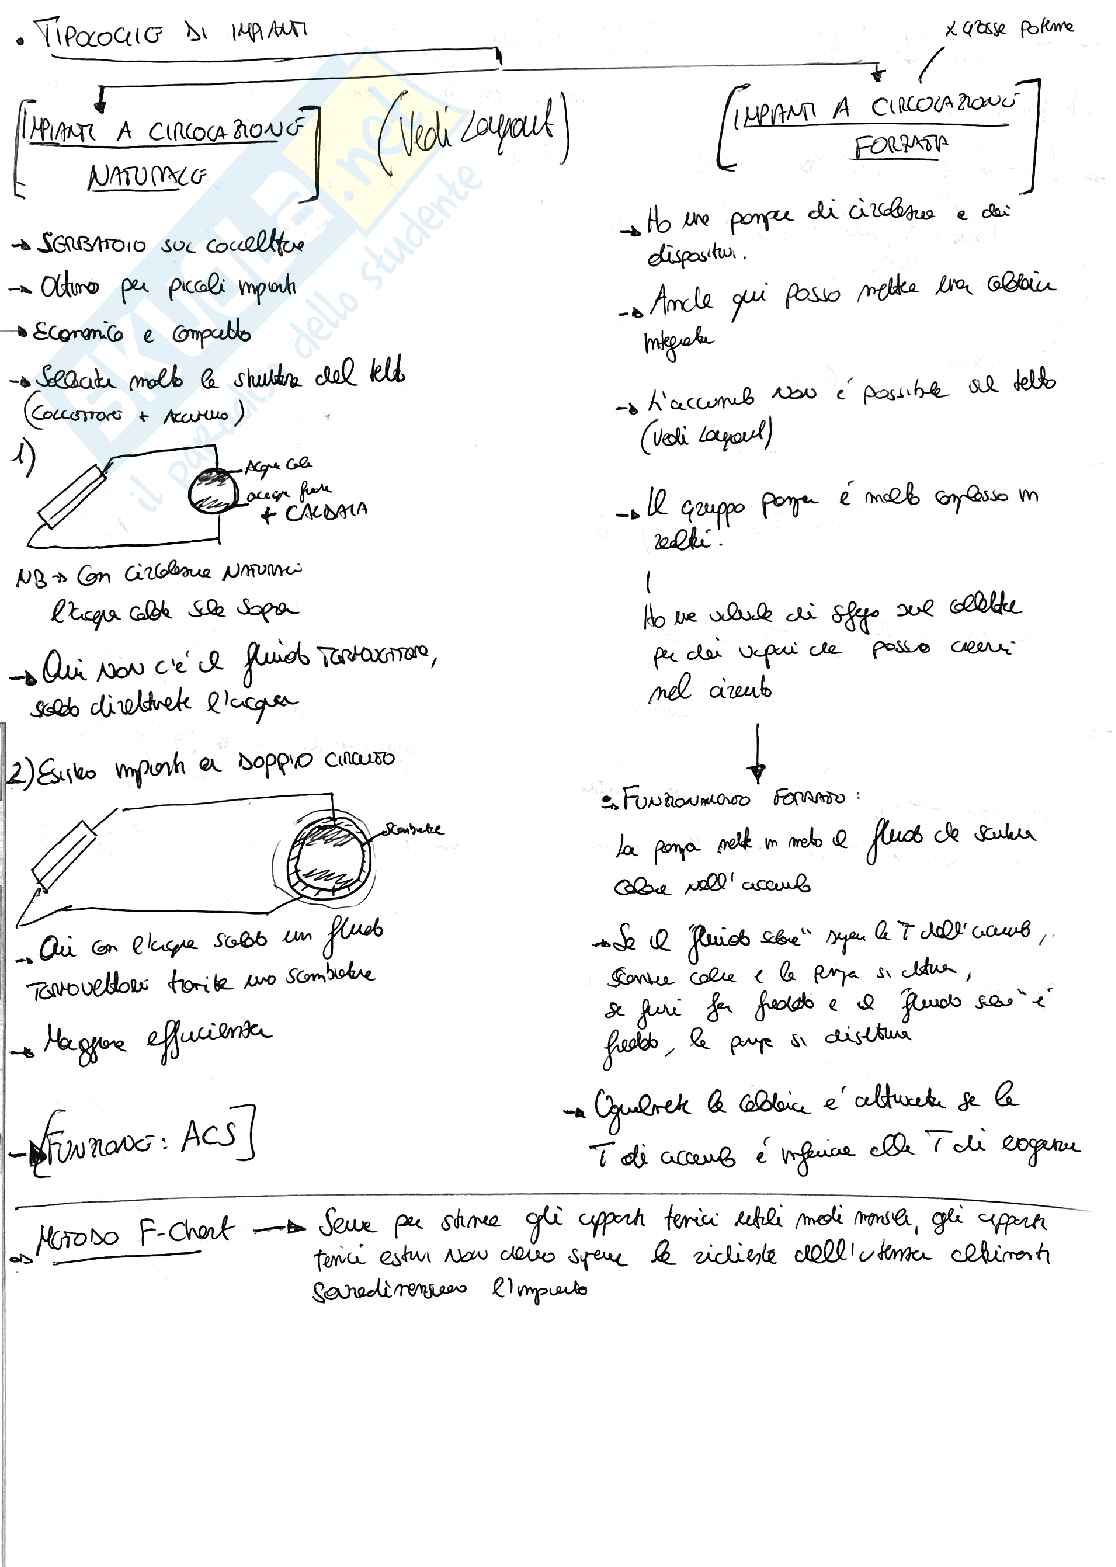 • TIPOLOGIE DI IMPIANTI
x grosse potenze
[IMPIANTI A CIRCOLAZIONE
NATURALE]
(Vedi Layout)
→ SERBATOIO SUL COLLETTORE
→ Ottimo per piccoli impianti
→ Economico e compatto
→ Sollecita molto la struttura del tetto
(COLLETTORE + ACCUMULO)
1)
Acqua calda
acqua fredda
+ CALDAIA
NB → Con circolazione NATURALE
l'acqua calda sale sopra
→ Qui NON c'é il fluido TERMOVETTORE,
scaldo direttamente l'acqua
2) Esistono impianti a DOPPIO CIRCUITO
scambiatore
→ Qui con l'acqua scaldo un fluido
TERMOVETTORE tramite uno scambiatore
→ Maggiore efficienza
→ [FUNZIONE: ACS]
[IMPIANTI A CIRCOLAZIONE
FORZATA]
→ Ho una pompa di circolazione e dei
dispositivi.
→ Anche qui posso mettere una caldaia
integrata
→ L'accumulo NON é possibile al tetto
(Vedi Layout)
→ Il gruppo pompa é molto complesso in
realtà.
Ho una valvola di sfogo sul collettore
per dei vapori che possono crearsi
nel circuito
→ FUNZIONAMENTO FORZATO:
La pompa mette in moto il fluido che scambia
calore nell'accumulo
→ Se il "fluido solare" supera la T dell'accumulo,
scambia calore e la pompa si attiva,
se fuori fa freddo e il "fluido solare" é
freddo, la pompa si disattiva
→ Ugualmente la caldaia é attivata se la
T di accumulo é inferiore alla T di erogazione
→ METODO F-Chart → Serve per stimare gli apporti termici utili medi mensili, gli apporti
termici estivi NON devono superare le richieste dell'utenza altrimenti
sovradimensiono l'impianto
SKUOLA.net
il paradiso dello studente